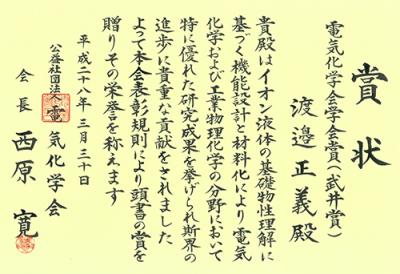 賞状
電気化学会学会賞(武井賞)
渡邉正義殿
貴殿はイオン液体の基礎物性理解に
基づく機能設計と材料化により電気
化学および工業物理化学の分野において
特に優れた研究成果を挙げられ斯界の
進歩に貴重な貢献をされました
よって本会表彰規則により頭書の賞を
贈りその栄誉を称えます
平成二十八年三月三十日
公益社団法人電気化学会
会長 西原 寛